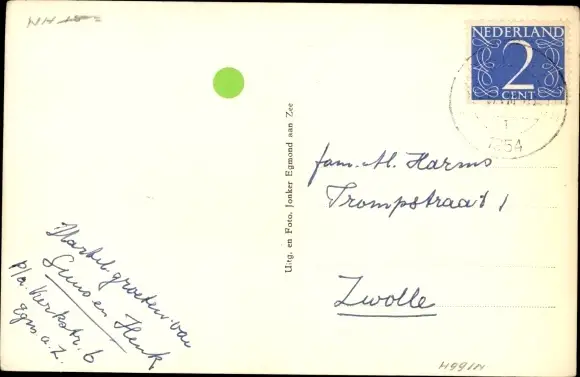 NEDERLAND
2
CENT
1954
fam. M. Harms
Trompstraat 1
Zwolle
Uitg. en Foto. Jonker Egmond aan Zee
Hartel. groeten van
en Henk
p/a. Kerkstr. 6
Egm. a. Z.